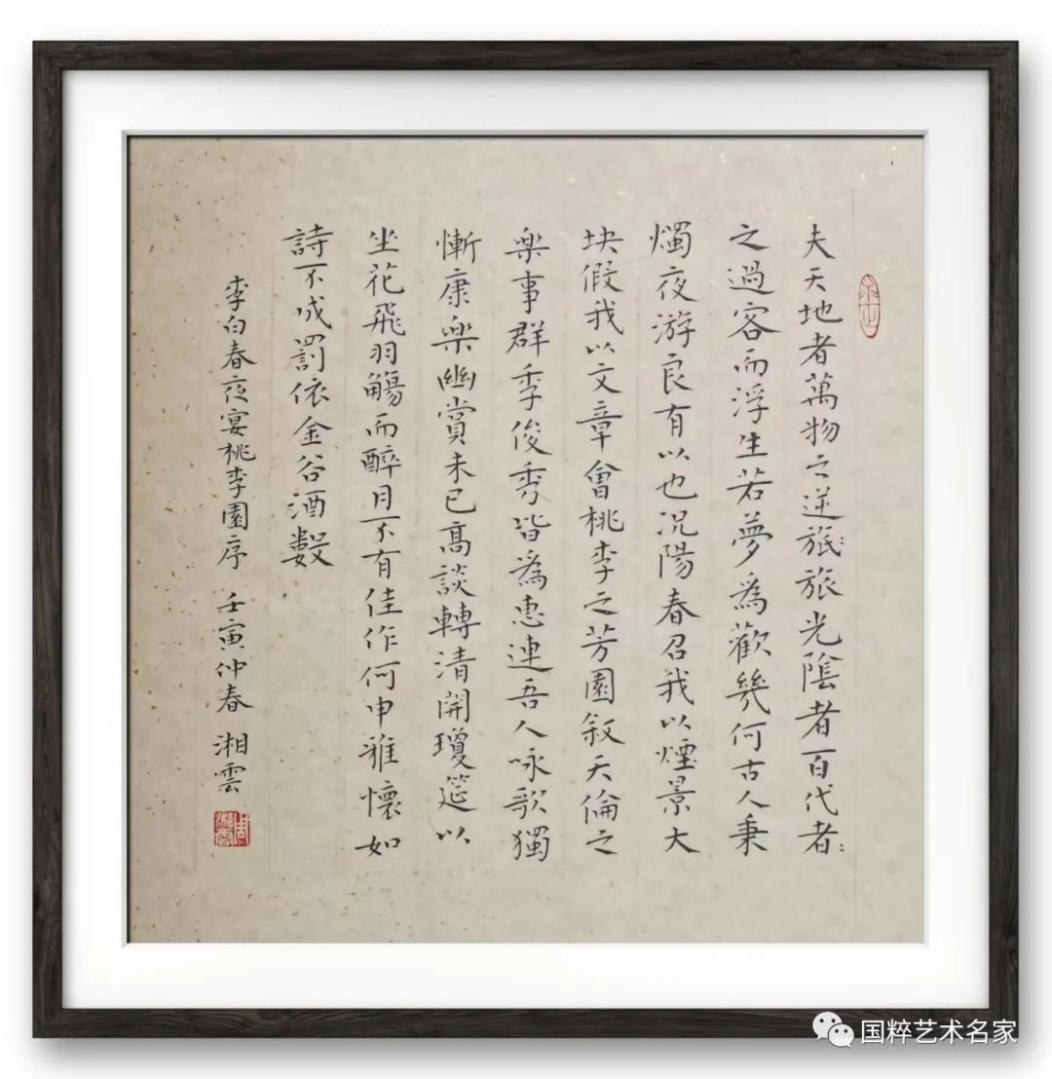 夫天地者萬物之逆旅旅光陰者百代者
之過客而浮生若夢為歡幾何古人秉
燭夜游良有以也況陽春召我以煙景大
块假我以文章會桃李之芳園叙天倫之
樂事群季俊秀皆為惠連吾人咏歌獨
慚康樂幽賞未已高談轉清開瓊筵以
坐花飛羽觴而醉月不有佳作何申雅懷如
詩不成罰依金谷酒數
李白春夜宴桃李園序 壬寅仲春 湘雲
国粹艺术名家